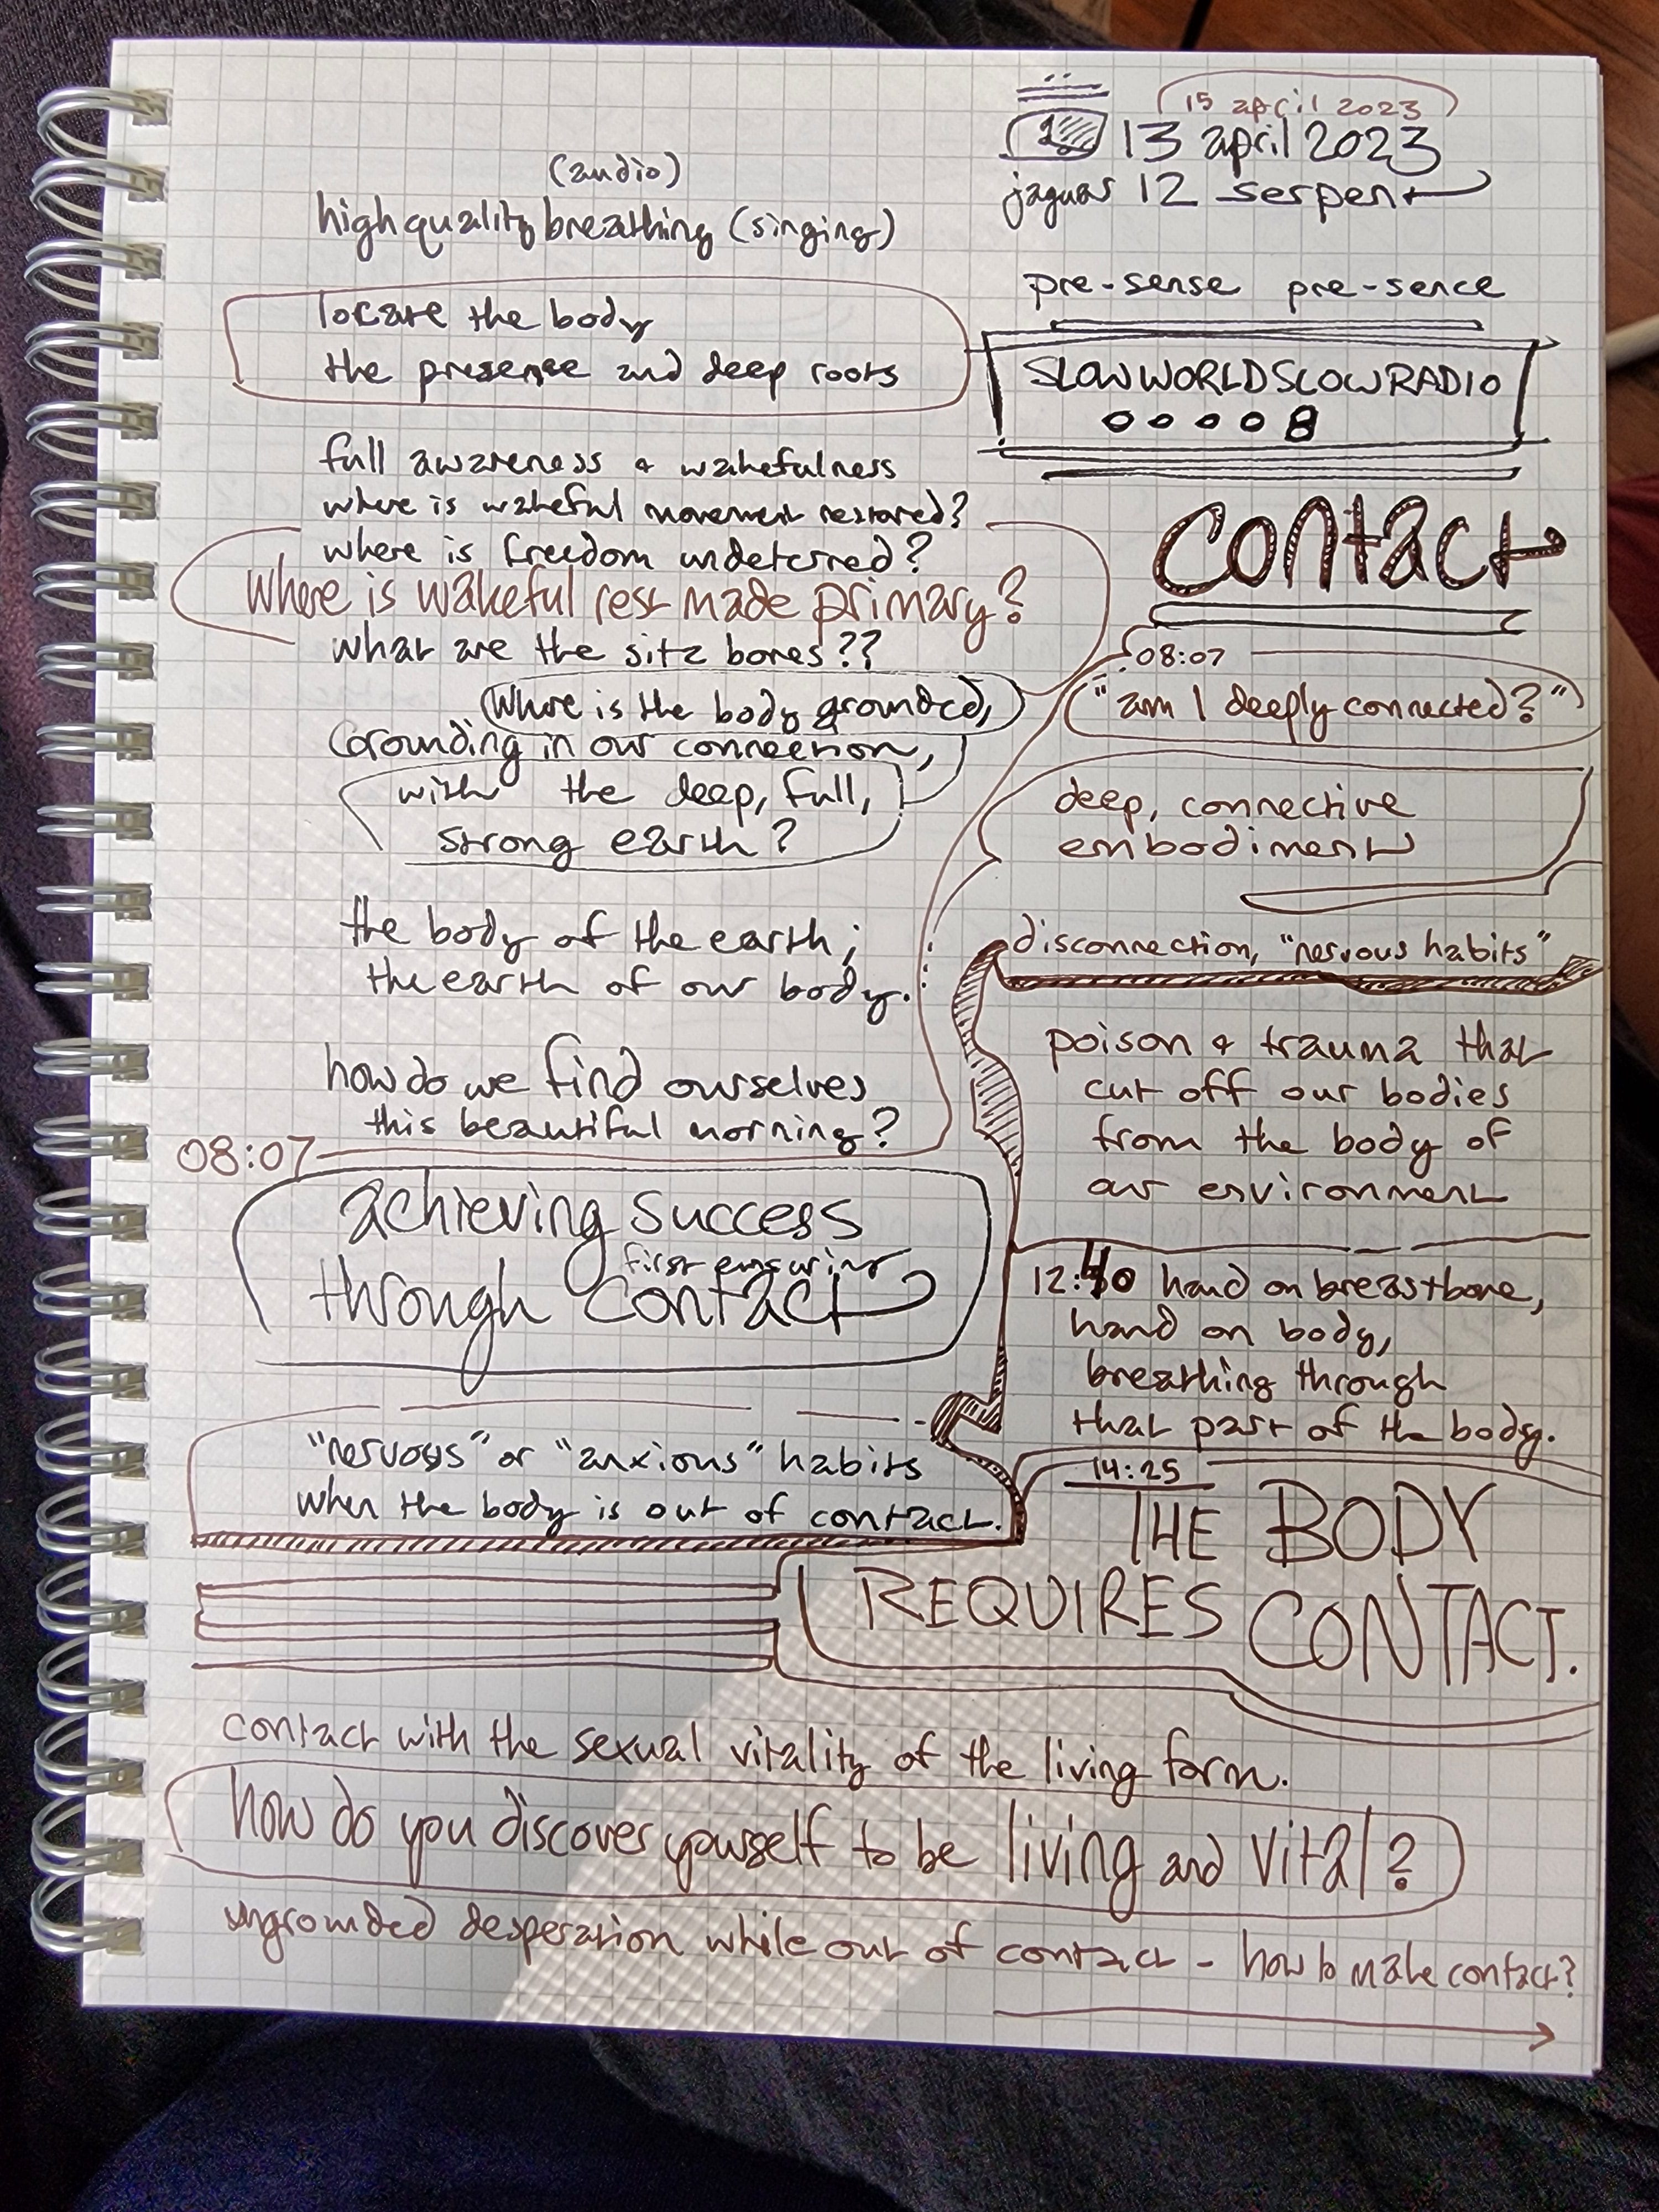 15 april 2023
13 april 2023
jaguar 12 serpent
(audio)
high quality breathing (singing)
locate the body
the presense and deep roots
full awareness & wakefulness
where is wakeful movement restored?
where is freedom undeterred?
Where is wakeful rest made primary?
what are the sitz bones??
(where is the body grounded,)
Grounding in our connection,
with the deep, full,
strong earth?
the body of the earth;
the earth of our body.
how do we find ourselves
this beautiful morning?
08:07
achieving success
first ensuring
through contact
"nervous" or "anxious" habits
when the body is out of contact.
pre-sense pre-sence
SLOWWORLDSLOWRADIO
00008
contact
08:07
"am I deeply connected?"
deep, connective
embodiment
disconnection, "nervous habits"
poison & trauma that
cut off our bodies
from the body of
our environment
12:40 hand on breastbone,
hand on body,
breathing through
that part of the body.
14:25
THE BODY
REQUIRES CONTACT.
contact with the sexual vitality of the living form.
how do you discover yourself to be living and vital?
ungrounded desperation while out of contact - how to make contact?